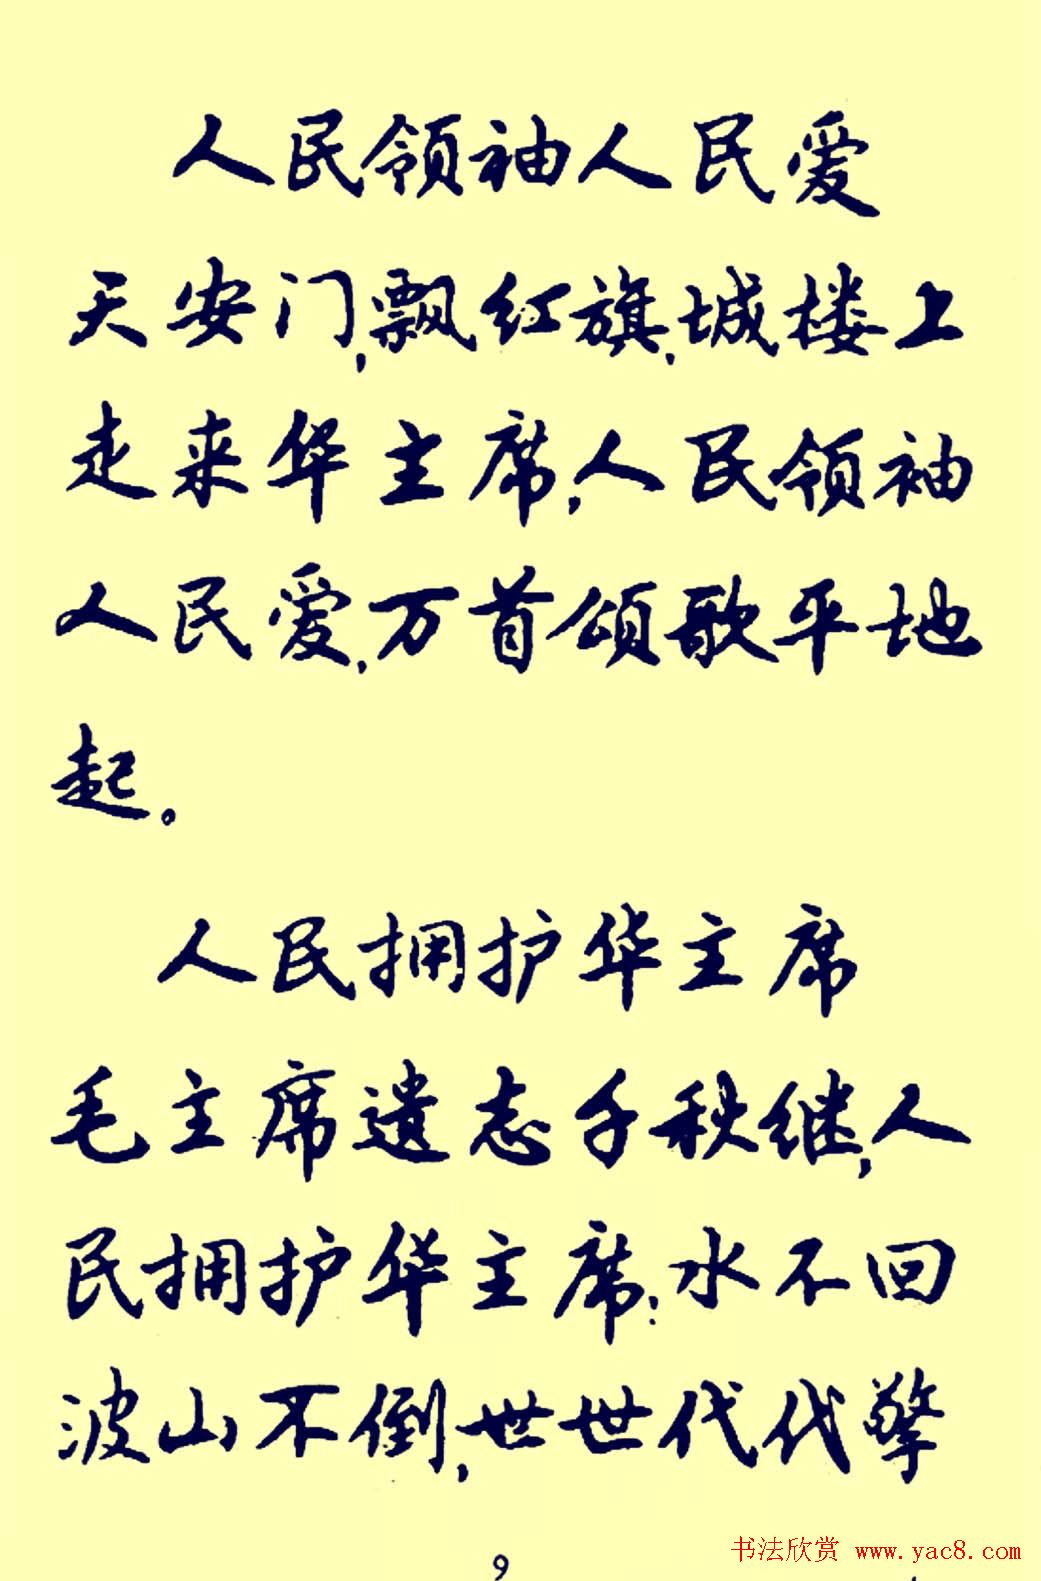 人民领袖人民爱
天安门,飘红旗,城楼上
走来华主席,人民领袖
人民爱,万首颂歌平地
起。
人民拥护华主席
毛主席遗志千秋继,人
民拥护华主席;水不回
波山不倒,世世代代擎
9
书法欣赏 www.yac8.com